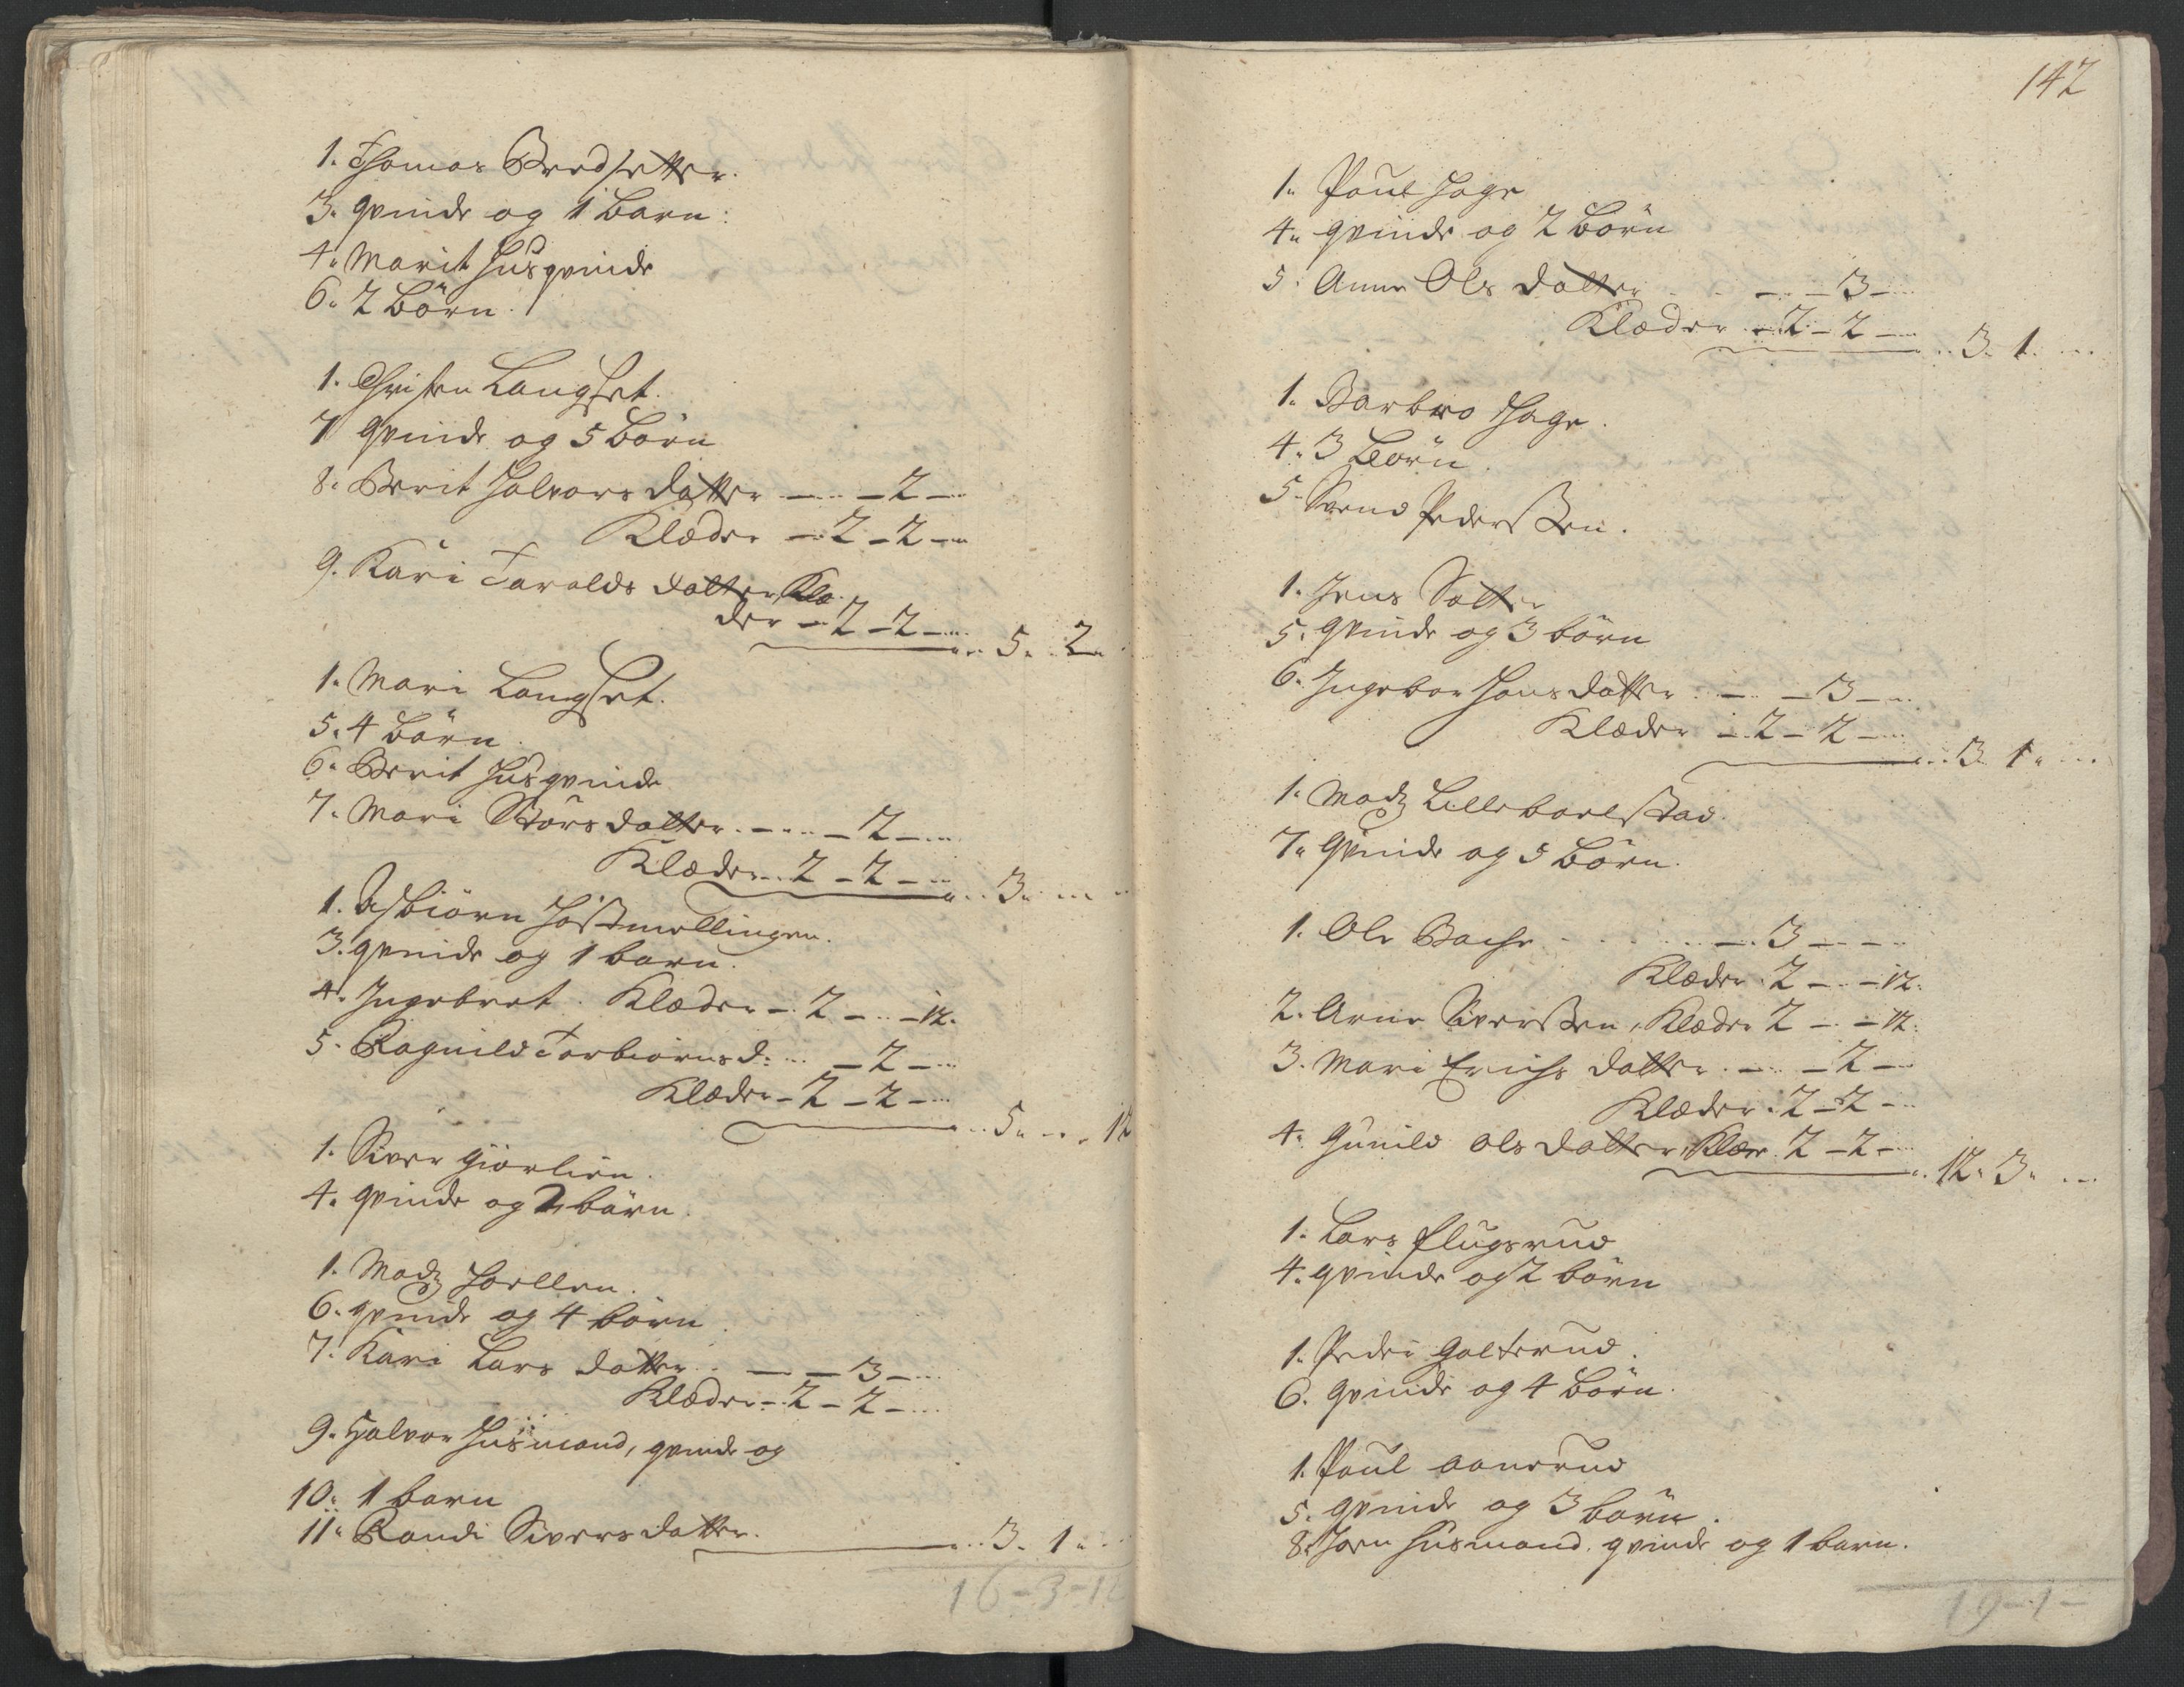 1. Thomas Bredsetter.
3. qvinde og 1 Barn:
4. Marit Husqvinde
6. 2 Börn.
1. Christen Langset.
7 qvinde og 5 Börn
8. Berit Halvors datter — — 2 —
Klæder — 2 — 2 —
9. Kari Taralds datter Klæ
der — 2 — 2 — 5. 2.
1. Mari Langset.
5. 4 Börn.
6. Berit Husqvinde
7. Mari Börs datter. — — 2 —
Klæder. 2 — 2 — 3.
1. Asbiörn
3. qvinde og 1 barn.
4. Ingebret. Klæder — 2 — — 12.
5. Ragnild Torbiörnsd: — 2 —
Klæder — 2 — 2 — 5. — . 12
1. Siver Giörlien.
4. qvinde og 2 börn.
1. Madz Hoellen.
6. qvinde og 4 börn.
7. Kari Lars datter. — — 3 —
Klæder — 2 — 2 —
9. Halvor Husmand, qvinde og
10. 1 barn
11. Randi Sivers datter. 3. 1.
16-3-12
142
1. Poul Hage
4. qvinde og 2 Börn
5. Anne Ols datter — — 3 —
Klæder — 2 — 2 — 3. 1.
1. Barbro Hage.
4. 3 Börn.
5. Svend Pederssen.
1. Jens Satter
5. qvinde og 3 börn
6. Ingebor Hans datter — — 3 —
Klæder — 2 — 2 — 3 1.
1. Madz Lillebarlstad.
7. qvinde og 5 Börn.
1. Ole Bache — 3 — —
Klæder. 2 — — 12.
2. Arne Siverssen, Klæder 2 — — 12.
3. Mari Erichs datter. — — 2 —
Klæder. 2 — 2 —
4. Gunild Ols datter, Klær. 2 — 2 — 12. 3.
1. Lars Flugsrud
4. qvinde og 2 börn
1. Peder Galterud.
6. qvinde og 4 Börn.
1. Poul Aanerud
5. qvinde og 3 börn.
8. Jörn Husmand. qvinde og 1 barn.
19-1-